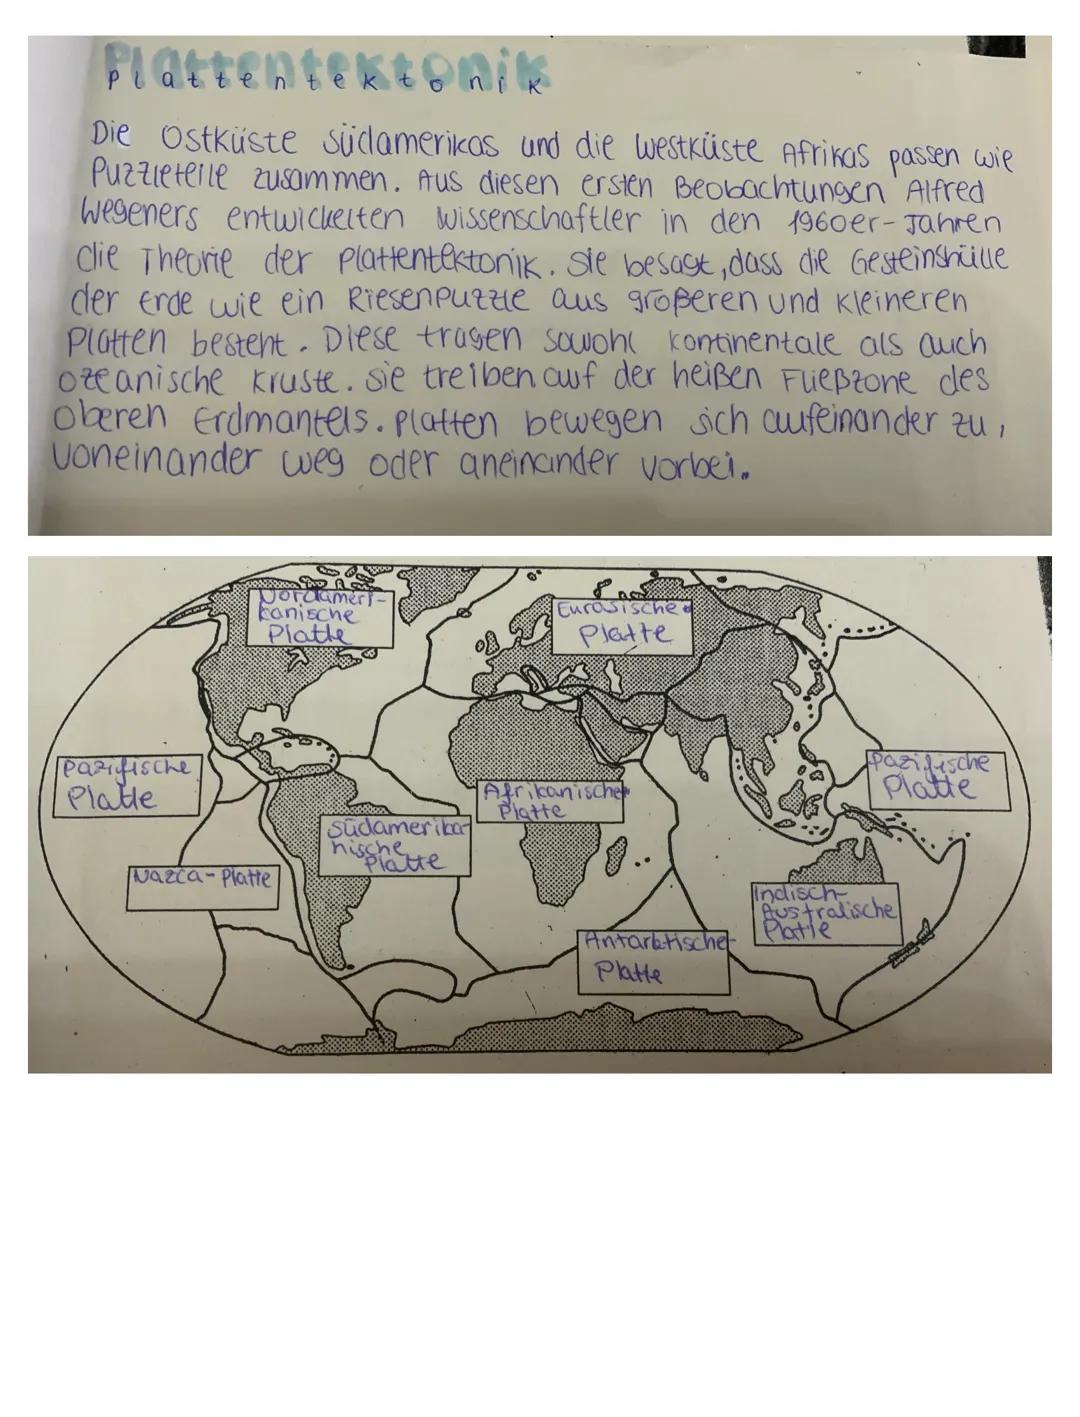 Plattentektonik
Plattentektonik
Die Ostküste Südamerikas und die Westküste Afrikas passen wie
Puzzleteile zusammen. Aus diesen ersten Beobachtungen Alfred
Wegeners entwickelten Wissenschaftler in den 1960er-Jahren
die Theorie der Plattentektonik. Sie besagt, dass die Gesteinshülle
der Erde wie ein Riesenpuzzle aus größeren und kleineren
Platten besteht. Diese tragen sowohl kontinentale als auch
ozeanische Kruste. Sie treiben auf der heißen Fließzone des
oberen Erdmantels. Platten bewegen sich aufeinander zu,
voneinander weg oder aneinander vorbei.
Nordameri-
kanische
Platte
Eurasische
Platte
Pazifische
Platte
Afrikanische
Platte
Pazifische
Platte
Südamerika-
nische
Platte
Nazca-Platte
Indisch-
Australische
Platte
Antarktische
Platte